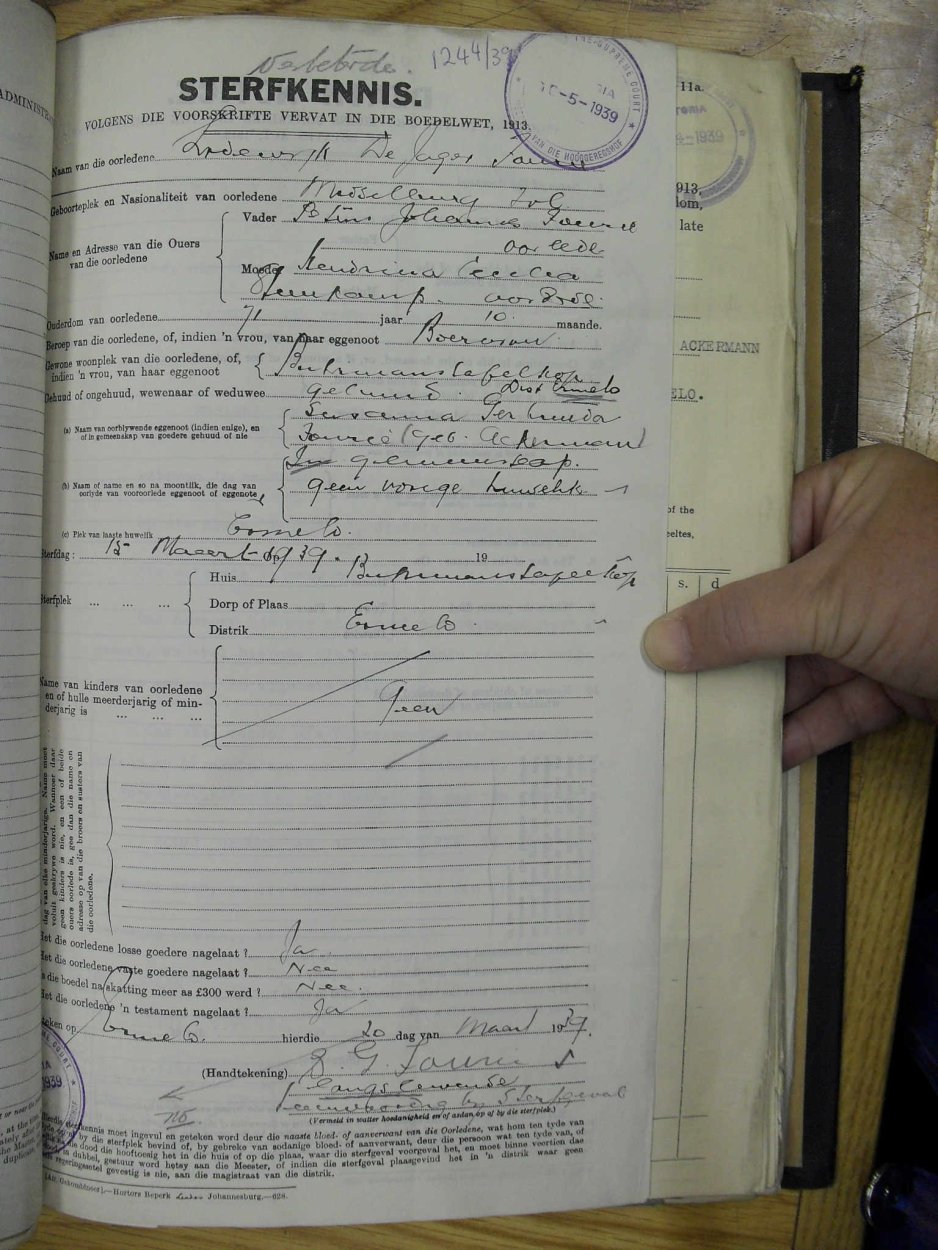 1244/39
STERFKENNIS.
VOLGENS DIE VOORSKRIFTE VERVAT IN DIE BOEDELWET, 1913.
SUPREME COURT
-5-1939
VAN DIE HOOGGEREGSHOF
Naam van die oorledene De Jager
Geboorteplek en Nasionaliteit van oorledene
Name en Adresse van die Ouers van die oorledene
Vader Johannes Fourie
oorlede
Moeder Hendrina Cecelia
Steenkamp. oorlede.
Ouderdom van oorledene 71 jaar 10 maande.
Beroep van die oorledene, of, indien 'n vrou, van haar eggenoot
Gewone woonplek van die oorledene, of, indien 'n vrou, van haar eggenoot Buhrmanstafelkop
Dist Ermelo
Gehuud of ongehuud, wewenaar of weduwee gehuud
(a) Naam van oorblywende eggenoot (indien enige), en of in gemeenskap van goedere gehuud of nie Susanna Gertruida
Fourie (geb. Ackerman)
In gemeenskap.
(b) Naam of name en so na moontlik, die dag van oorlyde van vooroorlede eggenoot of eggenote geen vorige huwelik
(c) Plek van laaste huwelik Ermelo.
Sterfdag: 15 Maart 1939. 19
Sterfplek ... ... ...
Huis Buhrmanstafelkop
Dorp of Plaas
Distrik Ermelo
Name van kinders van oorledene en of hulle meerderjarig of minderjarig is ... ... ...
Geen
dag van elke minderjarige. Name moet
voluit geskrywe word. Wanneer daar
geen kinders is nie, en een of beide
ouers oorlede is, gee dan die name en
adresse op van die broers en susters van
die oorledene.
Het die oorledene losse goedere nagelaat? Ja
Het die oorledene vaste goedere nagelaat? Nee
Is die boedel na skatting meer as £300 werd? Nee.
Het die oorledene 'n testament nagelaat? Ja
Ermelo. hierdie 20 dag van Maart 1939.
(Handtekening) S. G. Fourie
langslewende
teenwoordig by sterfgeval
(Vermeld in watter hoedanigheid en of antan op of by die sterfplek.)
nb.
kennis moet ingevul en geteken word deur die naaste bloed- of aanverwant van die Oorledene, wat hom ten tyde van
by die sterfplek bevind of, by gebreke van sodanige bloed- of aanverwant, deur die persoon wat ten tyde van, of
die dood die hooftoesig het in die huis of op die plaas, waar die sterfgeval voorgeval het, en moet binne veertien dae
in dubbel, gestuur word hetsy aan die Meester, of indien die sterfgeval plaasgevind het in 'n distrik waar geen
regeringsetel gevestig is nie, aan die magistraat van die distrik.
Hortors Beperk Johannesburg.—628.
11a.
1939
913.
late
ACKERMANN
ELO.
of the
s. d